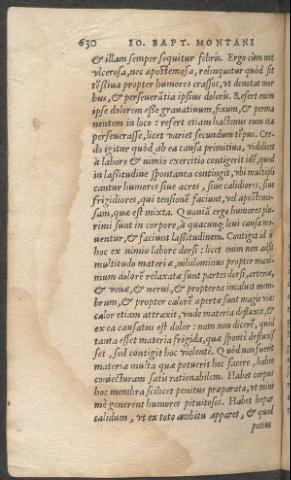 630 IO. BAPT. MONTANI
& illam semper sequitur febris. Ergo cùm nec
vlcerosa, nec apostemosa, relinquitur quòd sit
propter humores crassos, vt denotat mor
bus, & perseverātia ipsius doloris. Refert enim
ipse dolorem esse gravatiuum, fixum, & perma
nentem in loco: refert etiam hactenus eum ita
perseverasse, licet variet secundum tēpus. Cre
do igitur quòd ab ea causa primitiua, videlicet
à labore & nimio exercitio contigerit idē, quod
in lassitudine spontanea contingit, vbi multipli
cantur humores siue acres, siue calidiores, siue
frigidiores, qui tensionē faciunt, vel apostemo-
sam, quæ est mixta. Quoniā ergo humores plu
rimi sunt in corpore, à quacunq; leui causa mo
uentur, & faciunt lassitudinem. Contigit id in
hoc ex nimio labore dorsi: licet enim non adsit
multitudo materiæ, nihilominus propter maxi
mum dolorē relaxatæ sunt partes dorsi, arteriæ,
& venæ, & nerui, & propterea incaluit mem
brum, & propter calorē apertæ sunt magis viæ:
calor etiam attraxit, vnde materia defluxit, &
ex ea causatus est dolor: nam non dicerē, quòd
tanta esset materia frigida, quæ sponte defluxis
set, sed contigit hoc violente. Quòd non fuerit
materia multa quæ potuerit hoc facere, habeo
coniecturam satis rationabilem. Habet corpus
hoc membra scilicet penitus præparata, vt mini
mè generent humores pituitosos. Habet hepar
calidum, vt ex toto ambitu apparet, & quod
potius